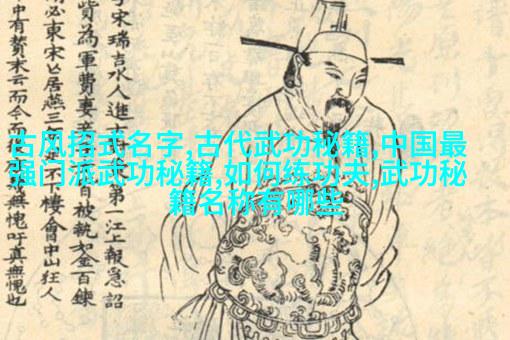 字宋瑞吉水人進士第一江上報急詔
貲為軍費妻被執如金百鍊
必東宋亡居燕三不下樓會中山狂人
中有贊末云而今而無愧吁真無愧也
古风招式名字,古代武功秘籍,中国最
强门派武功秘籍,如何练功夫,武功秘
籍名称有哪些